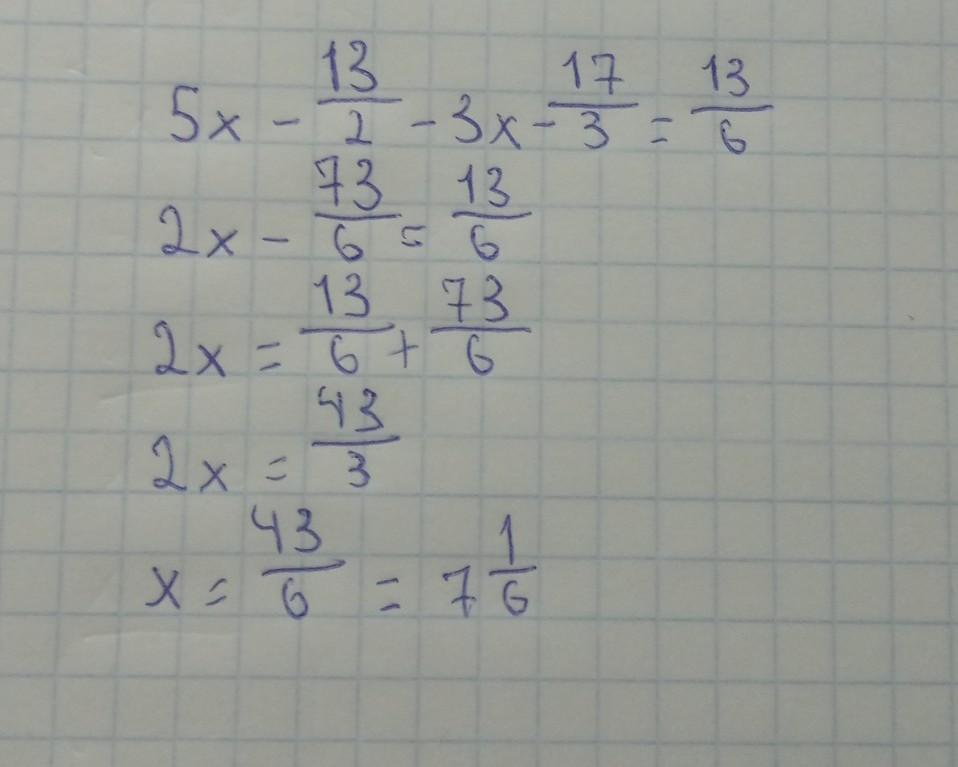 5x - 13/2 - 3x - 17/3 = 13/6
2x - 73/6 = 13/6
2x = 13/6 + 73/6
2x = 43/3
x = 43/6 = 7 1/6